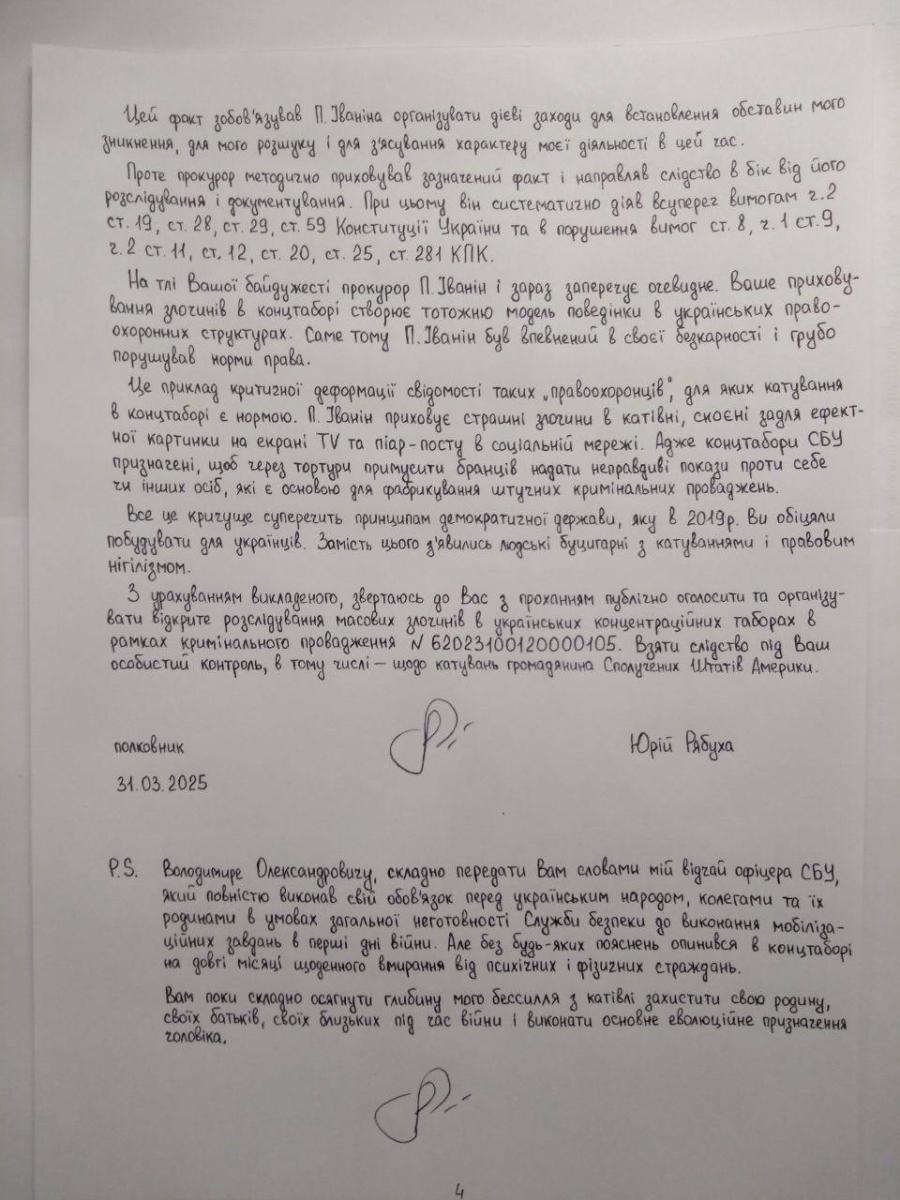 Цей факт зобов'язував П. Іваніна організувати дієві заходи для встановлення обставин мого
зникнення, для мого розшуку і для з'ясування характеру моєї діяльності в цей час.
Проте прокурор методично приховував зазначений факт і направляв слідство в бік від його
розслідування і документування. При цьому він систематично діяв всупереч вимогам ч.2
ст. 19, ст. 28, ст. 29, ст. 59 Конституції України та в порушення вимог ст. 8, ч. 1 ст. 9,
ч. 2 ст. 11, ст. 12, ст. 20, ст. 25, ст. 281 КПК.
На тлі Вашої байдужесті прокурор П. Іванін і зараз заперечує очевидне. Ваше прихову-
вання злочинів в концтаборі створює тотожню модель поведінки в українських право-
охоронних структурах. Саме тому П. Іванін був впевнений в своєї безкарності і грубо
порушував норми права.
Це приклад критичної деформації свідомості таких „правоохоронців", для яких катування
в концтаборі є нормою. П. Іванін приховує страшні злочини в катівні, скоєні задля ефект-
ної картинки на екрані TV та піар-посту в соціальній мережі. Адже концтабори СБУ
призначені, щоб через тортури примусити бранців надати неправдиві покази проти себе
чи інших осіб, які є основою для фабрикування штучних кримінальних проваджень.
Все це кричуще суперечить принципам демократичної держави, яку в 2019р. Ви обіцяли
побудувати для українців. Замість цього з'явились людські буцигарні з катуваннями і правовим
нігілізмом.
З урахуванням викладеного, звертаюсь до Вас з проханням публічно оголосити та організу-
вати відкрите розслідування масових злочинів в українських концентраційних таборах в
рамках кримінального провадження N 62023100120000105. Взяти слідство під Ваш
особистий контроль, в тому числі — щодо катувань громадянина Сполучених Штатів Америки.
полковник Юрій Рябуха
31.03.2025
P.S. Володимире Олександровичу, складно передати Вам словами мій відчай офіцера СБУ,
який повністю виконав свій обов'язок перед українським народом, колегами та їх
родинами в умовах загальної неготовності Служби безпеки до виконання мобіліза-
ційних завдань в перші дні війни. Але без будь-яких пояснень опинився в концтаборі
на довгі місяці щоденного вмирання від психічних і фізичних страждань.
Вам поки складно осягнути глибину мого бессилля з катівлі захистити свою родину,
своїх батьків, своїх близьких під час війни і виконати основне еволюційне призначення
чоловіка.
4